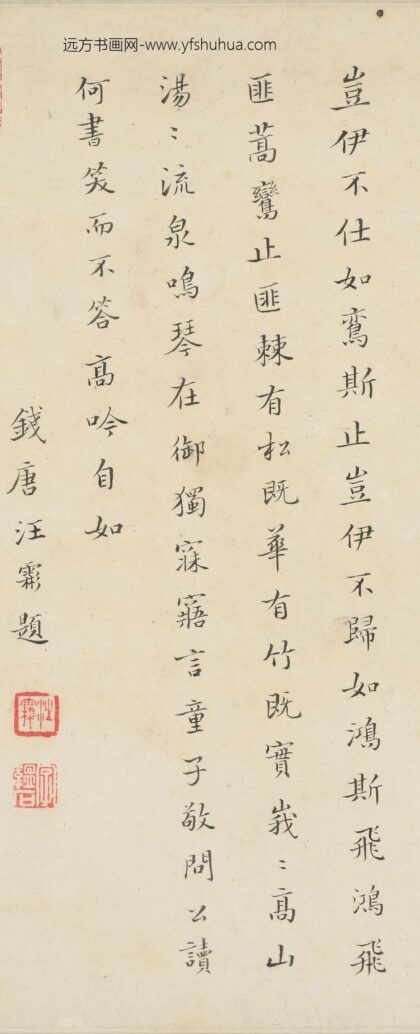 远方书画网-www.yfshuhua.com
豈伊不仕如鸞斯止豈伊不歸如鴻斯飛鴻飛
匪蒿鸞止匪棘有松既華有竹既實峩〻高山
湯〻流泉鳴琴在御獨寐寤言童子敬問公讀
何書笑而不答高吟自如
錢唐汪霦題
汪霦